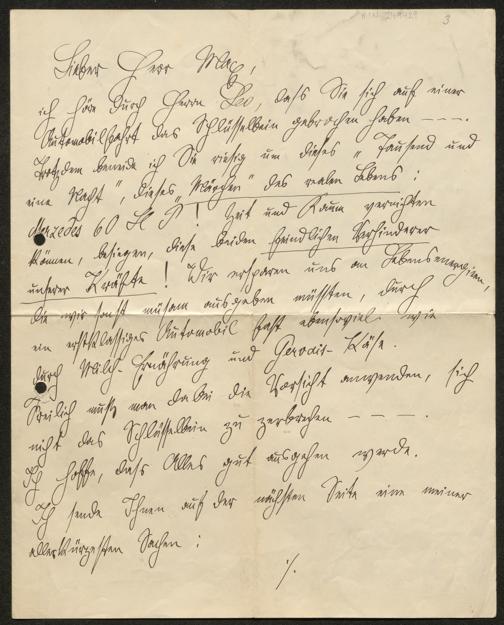 3
Lieber Herr
ich höre durch Herrn Leo, dass Sie sich auf einer
Automobilfahrt das Schlüsselbein gebrochen haben — — —.
Trotzdem beneide ich Sie riesig um dieses „Tausend und
eine Nacht", dieses „Märchen" des realen Lebens:
Merzedes 60 H P! Zeit und Raum vernichten
können, besiegen, diese beiden feindlichen Verhinderer
unserer Kräfte! Wir ersparen uns an Lebensenergieen,
die wir sonst mühsam ausgeben müssten, durch
ein erstklassiges Automobil fast ebensoviel wie
durch Milch-Ernährung und Gervais-Käse.
Freilich muss man dabei die Vorsicht anwenden, sich
nicht das Schlüsselbein zu zerbrechen — — —.
Ich hoffe, dass Alles gut ausgehen werde.
Ich sende Ihnen auf der nächsten Seite eine meiner
allerkürzesten Sachen:
./.